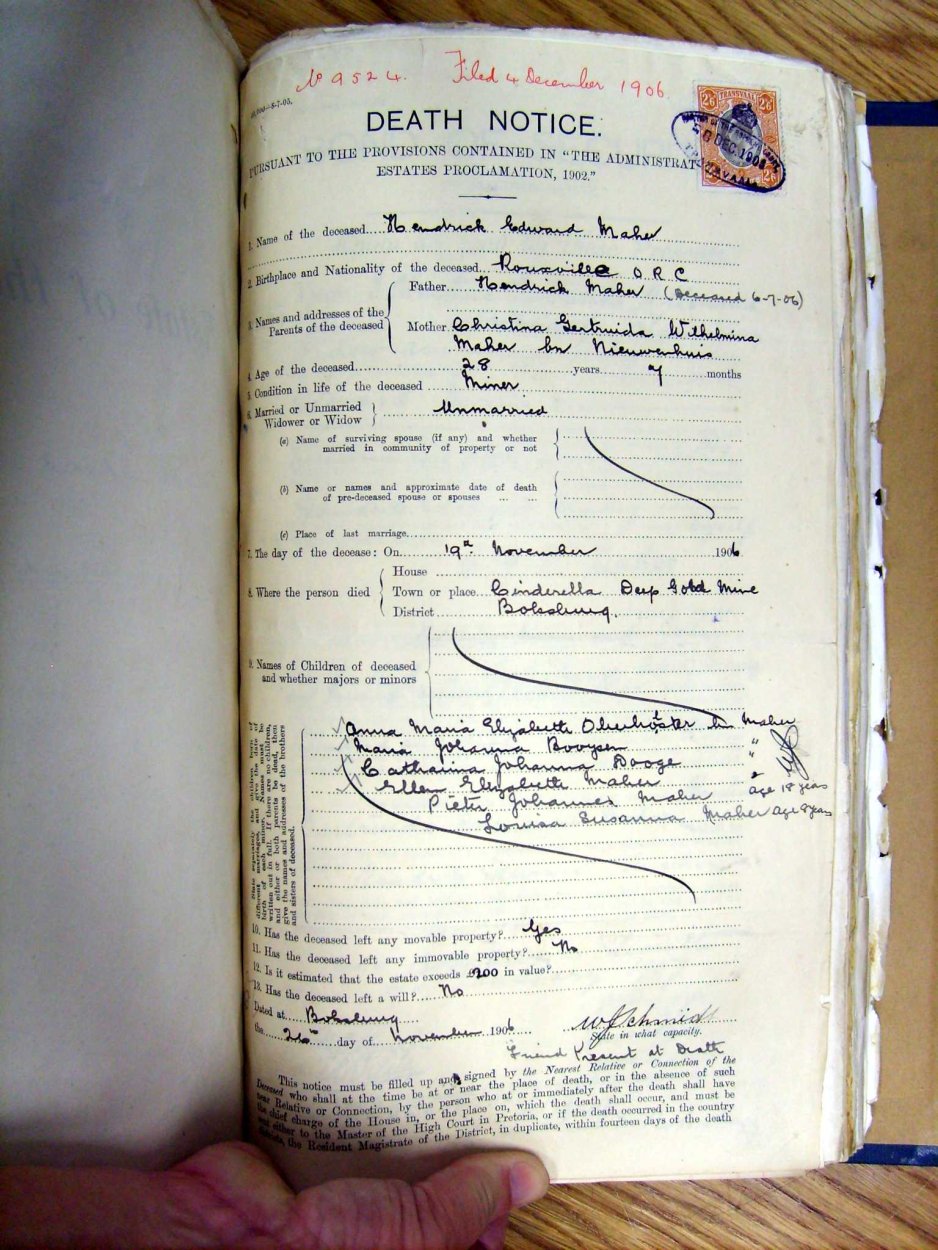 No 9524. Filed 4 December 1906.
40,000—8-7-05.
TRANSVAAL
2/6 2/6
DEC. 1906
2/6
DEATH NOTICE.
PURSUANT TO THE PROVISIONS CONTAINED IN "THE ADMINISTRAT
ESTATES PROCLAMATION, 1902."
1. Name of the deceased Hendrick Edward Maher
2. Birthplace and Nationality of the deceased Rouxville O. R. C
3. Names and addresses of the Parents of the deceased
Father Hendrick Maher (Deceased 6-7-06)
Mother Christina Gertruida Wilhelmina
Maher bn Nieuwenhuis
4. Age of the deceased 28 years 7 months
5. Condition in life of the deceased Miner
6. Married or Unmarried
Widower or Widow
Unmarried
(a) Name of surviving spouse (if any) and whether
married in community of property or not
(b) Name or names and approximate date of death
of pre-deceased spouse or spouses ... ...
(c) Place of last marriage
7. The day of the decease: On 19th November 1906
8. Where the person died
House
Town or place Cinderella Deep Gold Mine
District Boksburg.
9. Names of Children of deceased
and whether majors or minors
State separately the children born of
different marriages, and give the date of
birth of each minor. Names must be
written out in full. If there are no children,
and either or both parents be dead, then
give the names and addresses of the brothers
and sisters of deceased.
Anna Maria Elizabeth Oberholster bn Maher
Maria Johanna Booysen "
Catharina Johanna Dooge "
Ellen Elizabeth Maher
Pieter Johannes Maher age 18 years
Louisa Susanna Maher age 8 years
10. Has the deceased left any movable property? Yes
11. Has the deceased left any immovable property? No
12. Is it estimated that the estate exceeds £200 in value?
13. Has the deceased left a will? No
Dated at Boksburg
the 26th day of November 1906
WJSchmid
State in what capacity.
Friend Present at Death
This notice must be filled up and signed by the Nearest Relative or Connection of the
Deceased who shall at the time be at or near the place of death, or in the absence of such
near Relative or Connection, by the person who at or immediately after the death shall have
the chief charge of the House in, or the place on, which the death shall occur, and must be
sent either to the Master of the High Court in Pretoria, or if the death occurred in the country
the Resident Magistrate of the District, in duplicate, within fourteen days of the death